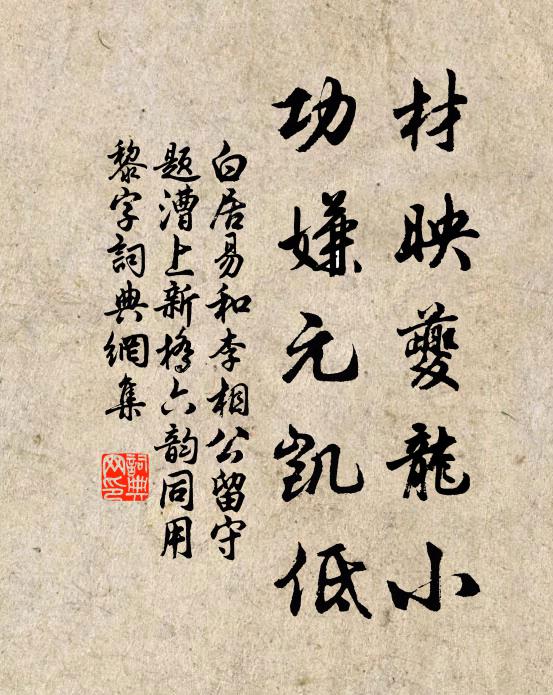 材映夔龍小
功嫌元凱低
白居易和李相公留守
題漕上新橋六韵同用
黎字詞典網集
詞典
网印